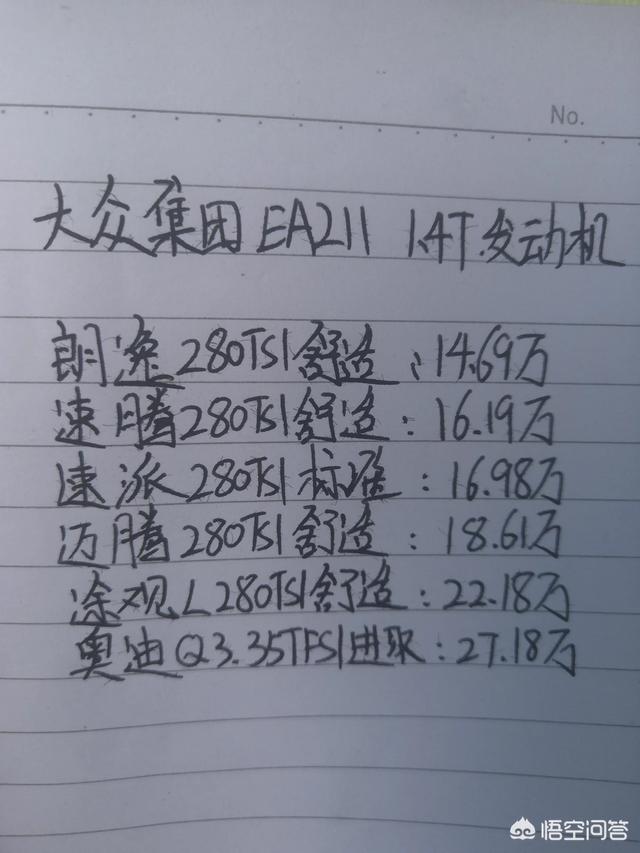 No.
大众集团EA211 1.4T发动机
朗逸280TSI舒适:14.69万
速腾280TSI舒适:16.19万
速派280TSI标准:16.98万
迈腾280TSI舒适:18.61万
途观L280TSI舒适:22.18万
奥迪Q3.35TFSI进取:27.18万
悟空问答